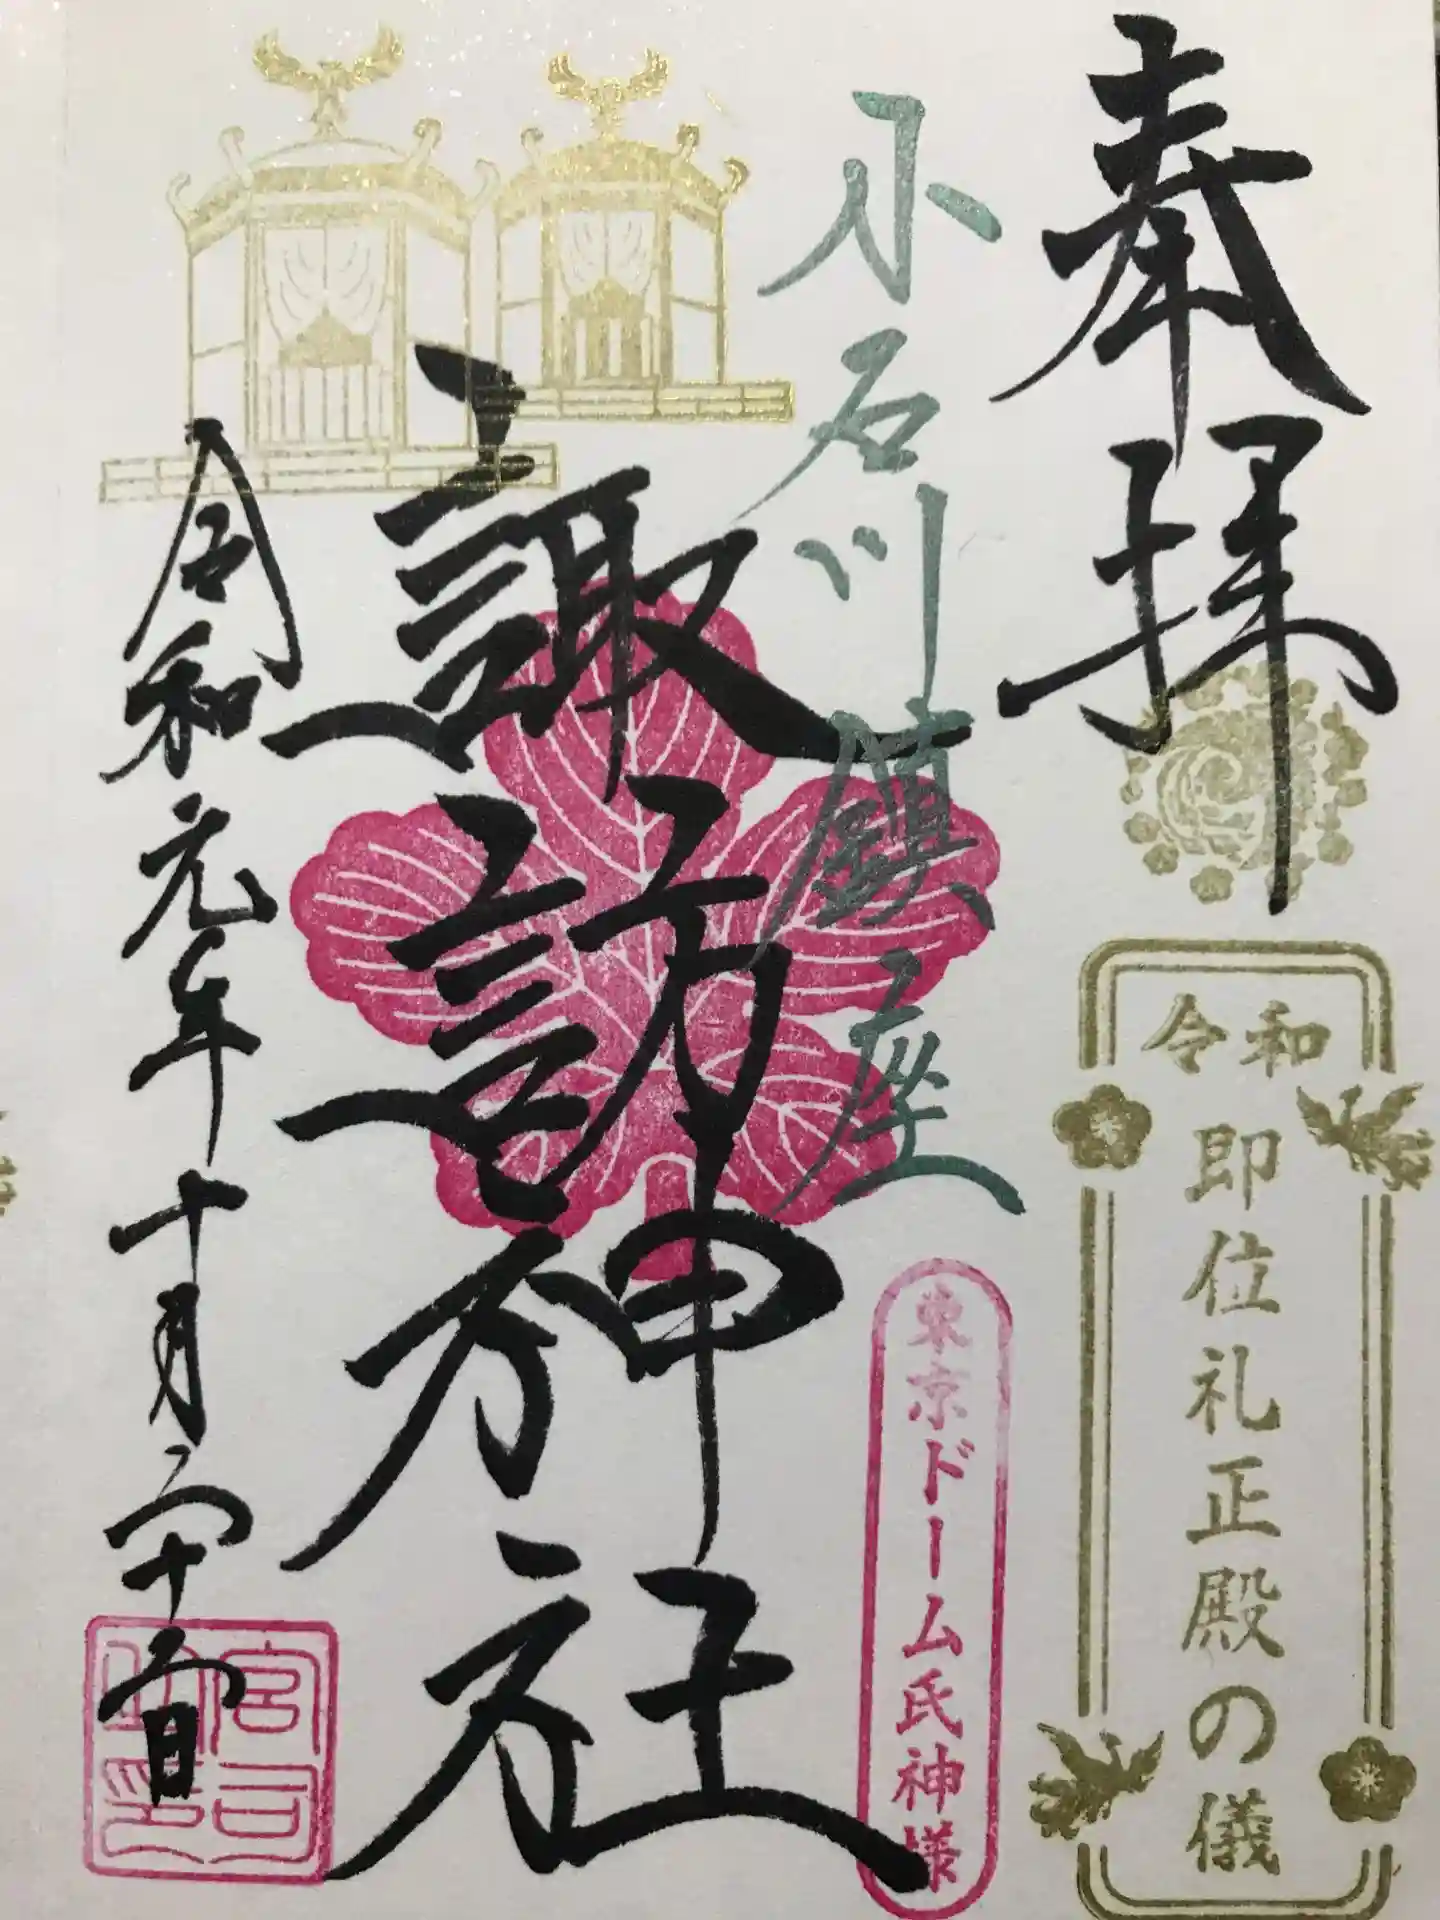 奉拝
令和
即位礼正殿の儀
小石川鎮座
東京ドーム氏神様
諏訪神社
令和元年十月二十二日
宮司之印